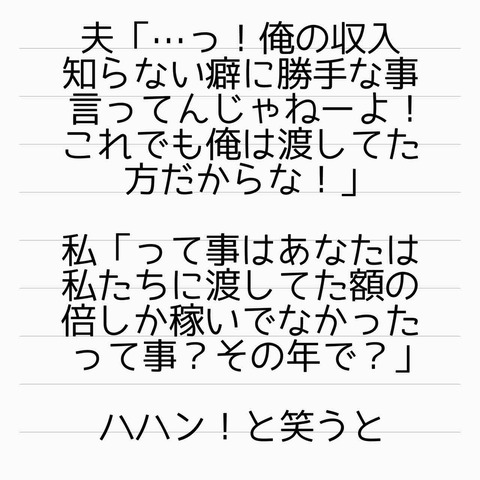 夫「…っ！俺の収入
知らない癖に勝手な事
言ってんじゃねーよ！
これでも俺は渡してた
方だからな！」
私「って事はあなたは
私たちに渡してた額の
倍しか稼いでなかった
って事？その年で？」
ハハン！と笑うと